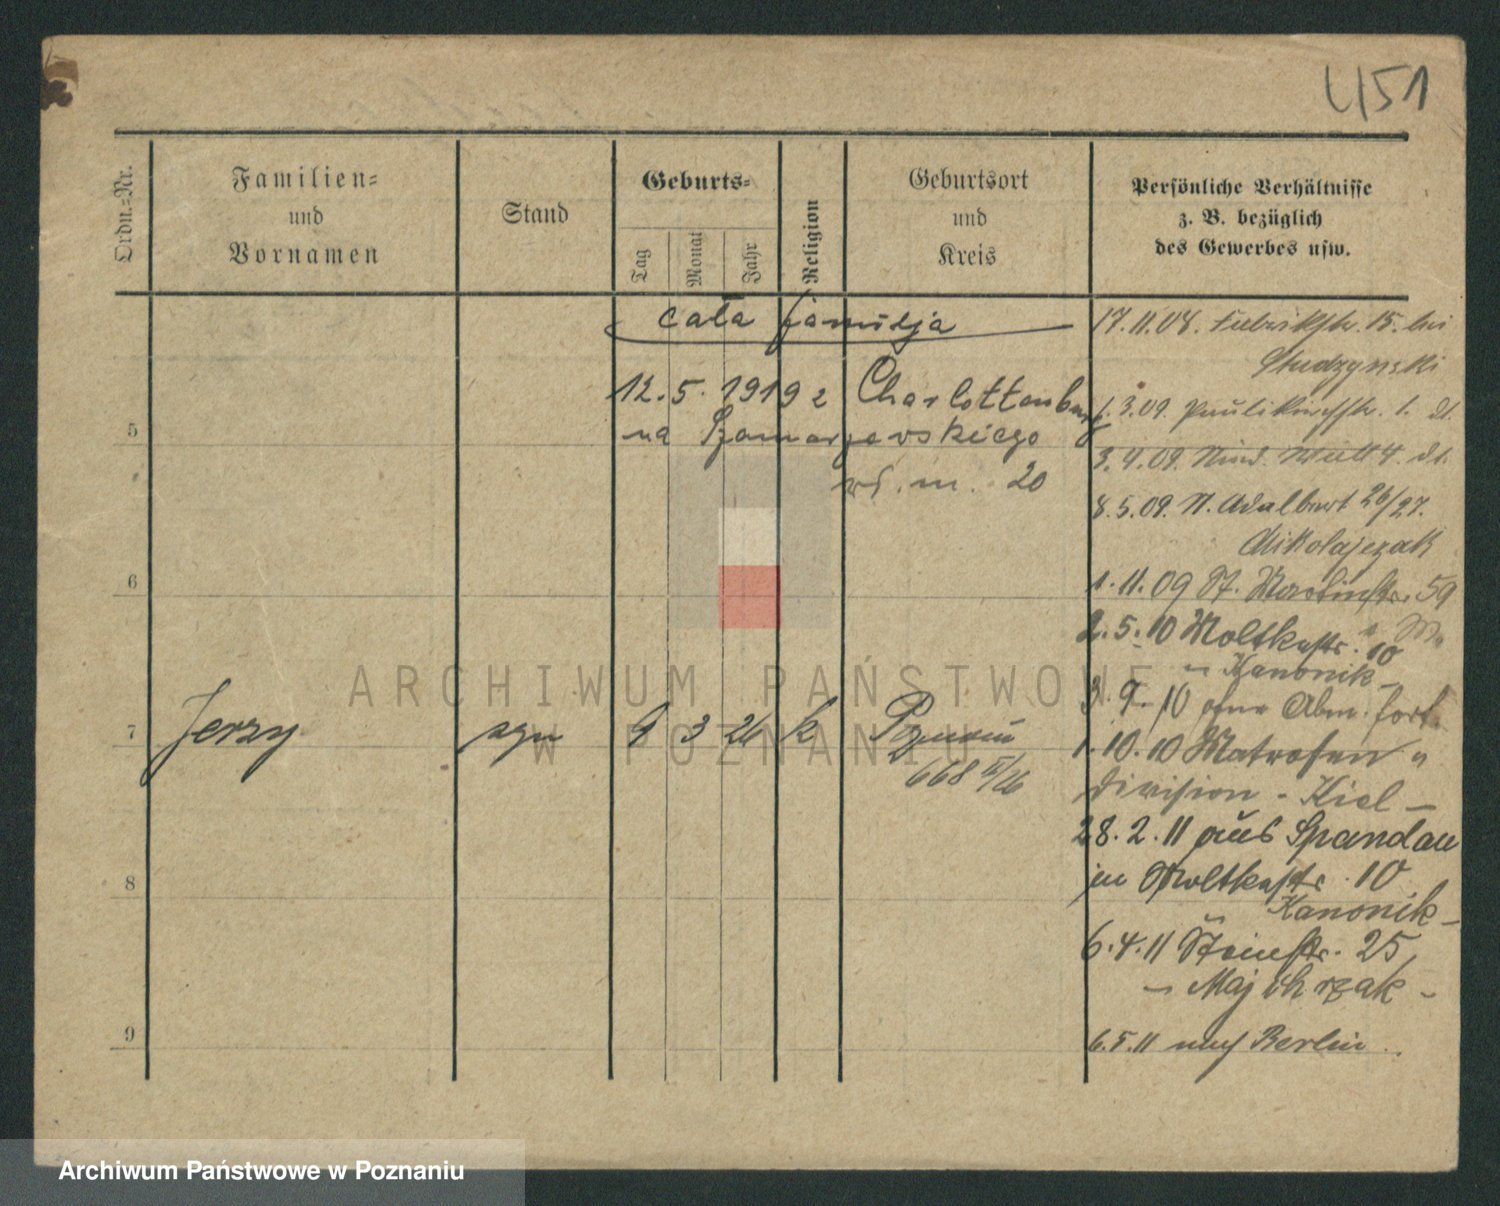 4151
Ordn.=Nr.
Familien=
und
Vornamen
Stand
Geburts=
Tag
Monat
Jahr
Religion
Geburtsort
und
Kreis
Persönliche Verhältnisse
z. B. bezüglich
des Gewerbes usw.
cała familja
12.5.1919 z Charlottenburg
na Szamarzewskiego
m. 20
5
6
7 Jerzy syn 9 3 26 k Poznań
668 II/26
8
9
17.11.08. Fabrikstr. 15. bei
Studzynski
1.3.09. Paulikirchstr. 1.
3.4.09.
8.5.09. St. Adalbert 26/27.
Mikolajczak
1.11.09 St. Martinstr. 59
2.5.10 Moltkestr. 10
- Kanonik -
3.9.10 ohne Abm. fort.
1.10.10 Matrosen
division - Kiel -
28.2.11 aus Spandau
in Moltkestr. 10
Kanonik -
6.4.11 Steinstr. 25
- Majchrzak -
6.5.11 nach Berlin
ARCHIWUM PAŃSTWOWE
W POZNANIU
Archiwum Państwowe w Poznaniu